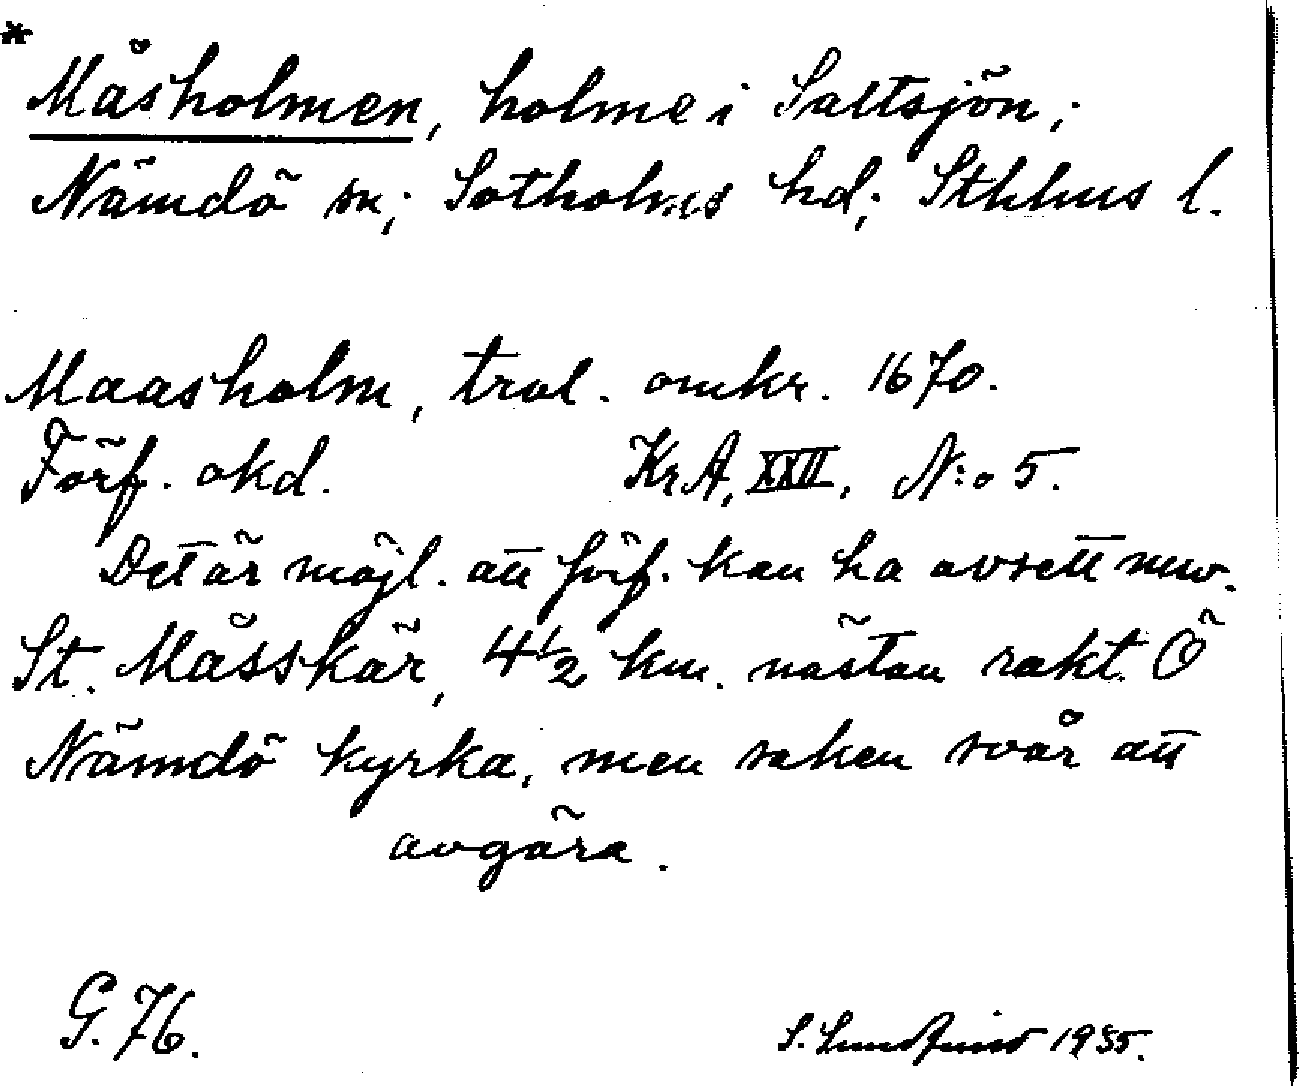 * Måsholmen, holme i Saltsjön;
Nämdö sn; Sotholms hd; Sthlms l.
Maasholm, trol. omkr. 1670.
Förf. okd. KrA, XXII, N:o 5.
Det är möjl. att förf. kan ha avsett nuv.
St. Måsskär, 4 1/2 km. nästan rakt Ö
Nämdö kyrka, men saken svår att
avgöra.
G. 76.
S. 1935.